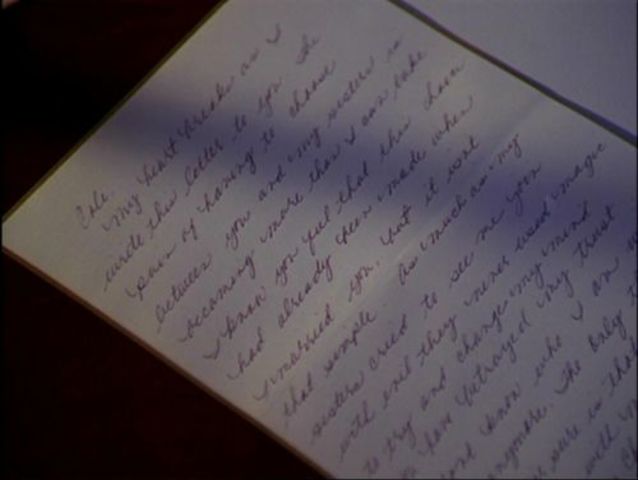 Cole,
My heart breaks as I
write this letter to you. The
pain of having to choose
between you and my sisters is
becoming more than I can take
I know you feel that this chose
had already been made when
I married you, but it isnt
that simple as much as my
sisters cried to see me your
with evil they never used magic
to try and change my mind
you have betrayed my trust
and know who I am
anymore. The baby
sure is that
with